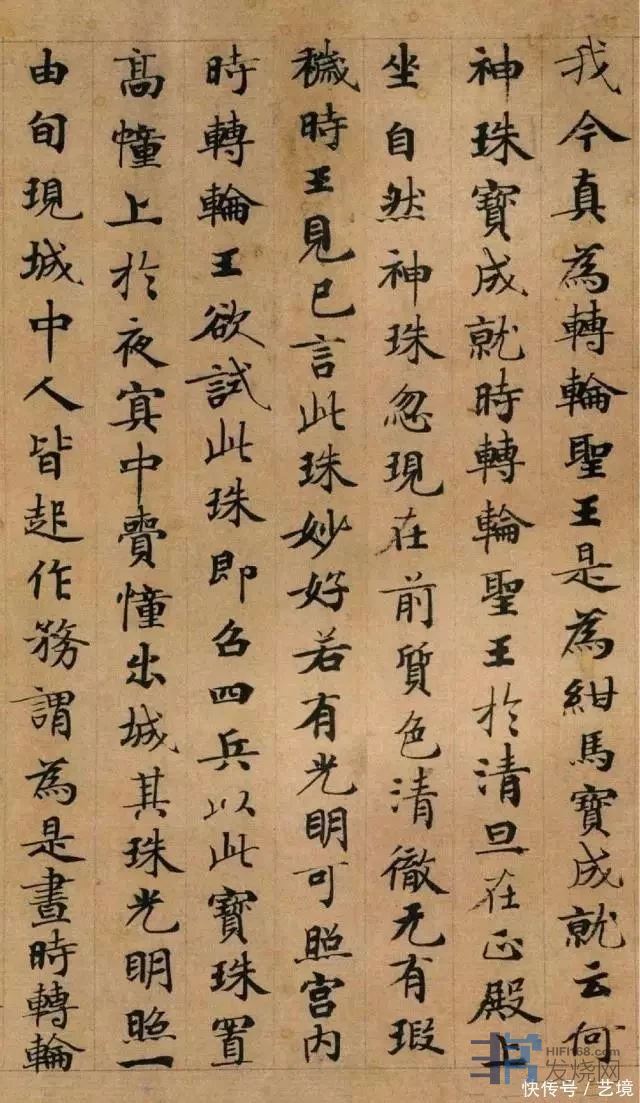 我今真為轉輪聖王是為紺馬寶成就云何
神珠寶成就時轉輪聖王於清旦在正殿上
坐自然神珠忽現在前質色清徹无有瑕
穢時王見已言此珠妙好若有光明可照宮内
時轉輪王欲試此珠即召四兵以此寶珠置
高幢上於夜㝠中賷幢出城其珠光明照一
由旬現城中人皆起作務謂為是晝時轉輪
HIFI168.com
发烧网
快传号／艺境